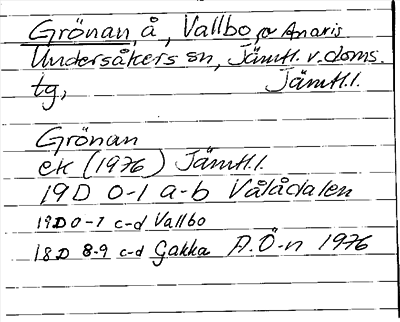 Grönan, å, Vallbo, Anaris
Undersåkers sn, Jämtl. v. doms.
tg, Jämtl.l.
Grönan
ek (1976) Jämtl.l.
19D 0-1 a-b Vålådalen
19D 0-1 c-d Vallbo
18D 8-9 c-d Gakka A.Ö-n 1976